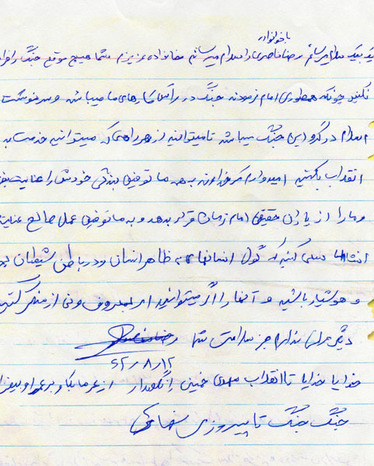 با خانواده
یک یک سلام میرسانم رضا ناصری را سلام میرسانم خانواده عزیزم شما هیچ موقع جنگ را فرا
نکنید چونکه همطوری امام فرمودند جنگ در رأس کارهای ما میباشد و سرنوشت
اسلام در گرو این جنگ میباشد تا میتوانید از هر راهی که میتوانید خدمت به
انقلاب بکنید امیدوارم که خداوند به همه ما توفیق بندگی خودش را عنایت
و ما را از یاران حقیقی امام زمان قرار بدهد و به ما توفیق عمل صالح عنایت
انشااله سعی کنید که گول انسانهای ظاهر انسان و در باطن شیطان
و هوشیار باشید و آنها را اگر میتوانید امر بمعروف و نهی از منکر کنید
دیگر عرضی ندارم جز سلامتی شما
۶۲/۸/۱۲
خدایا خدایا تا انقلاب مهدی خمینی را نگهدار از عمر ما بکاه و بر عمر او بیفزا
جنگ جنگ تا پیروزی نهایی